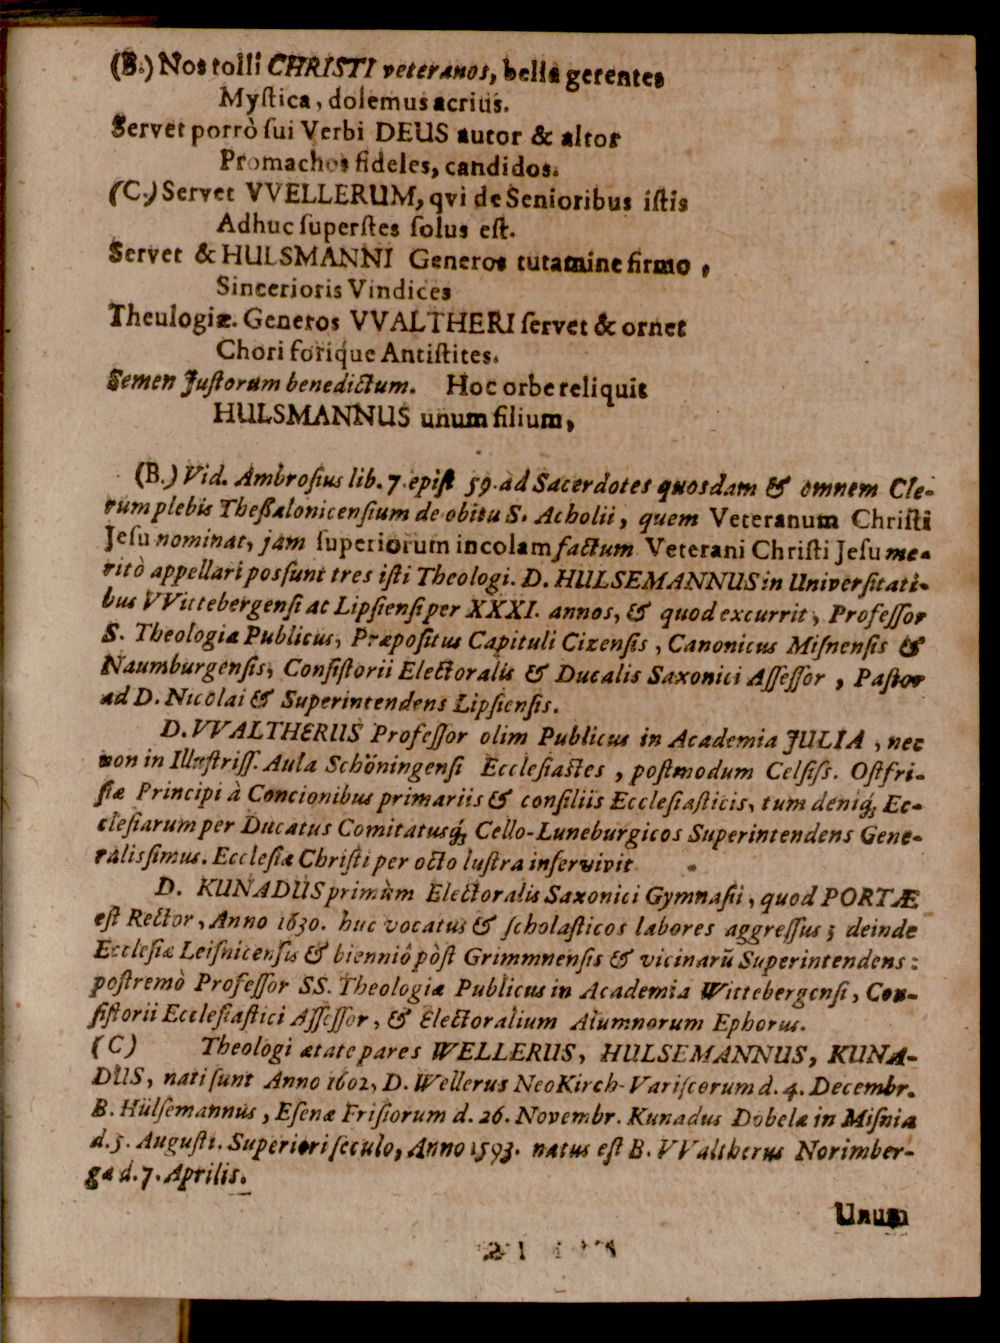 (B.) Nos tolli CHRISTI veteranos, bella gerentes
Mystica, dolemus acriùs.
Servet porrò sui Verbi DEUS autor & altor
Promachos fideles, candidos.
(C.) Servet VVELLERUM, qvi de Senioribus istis
Adhuc superstes solus est.
Servet & HULSMANNI Generos tutamine firmo,
Sincerioris Vindices
Theulogiæ. Generos VVALTHERI servet & ornet
Chori forique Antistites.
Semen Justorum benedictum. Hoc orbe reliquit
HULSMANNUS unum filium,
(B.) Vid. Ambrosius lib. 7. epist 59. ad Sacerdotes quosdam & omnem Cle-
rum plebis Thessalonicensium de obitu S. Acholii, quem Veteranum Christi
Jesu nominat, jam superiorum incolam factum Veterani Christi Jesu me-
ritò appellari possunt tres isti Theologi. D. HULSEMANNUS in Universitati-
bus VVittebergensi ac Lipsiensi per XXXI. annos, & quod excurrit, Professor
S. Theologiæ Publicus, Præpositus Capituli Cizensis, Canonicus Misnensis &
Naumburgensis, Consistorii Electoralis & Ducalis Saxonici Assessor, Pastor
ad D. Nicolai & Superintendens Lipsiensis.
D. VVALTHERUS Professor olim Publicus in Academia JULIA, nec
non in Illustriss. Aula Schöningensi Ecclesiastes, postmodum Celsiss. Ostfri-
siæ Principi à Concionibus primariis & consiliis Ecclesiasticis, tum deniq́; Ec-
clesiarum per Ducatus Comitatusq́; Cello-Luneburgicos Superintendens Gene-
ralissimus. Ecclesiæ Christi per octo lustra inservivit
D. KUNADUS primùm Electoralis Saxonici Gymnasii, quod PORTÆ
est Rector, Anno 1630. huc vocatus & scholasticos labores aggressus; deinde
Ecclesiæ Leisnicensis & bienniô pòst Grimmnensis & vicinarũ Superintendens:
postremò Professor SS. Theologiæ Publicus in Academia Wittebergensi, Con-
sistorii Ecclesiastici Assessor, & Electoralium Alumnorum Ephorus.
(C) Theologi ætate pares WELLERUS, HULSEMANNUS, KUNA-
DUS, nati sunt Anno 1602, D. Wellerus NeoKirch-Variscorum d. 4. Decembr.
B. Hülsemannus, Esenæ Frisiorum d. 26. Novembr. Kunadus Dobelæ in Misnia
d. 5. Augusti. Superiori seculo, Anno 1593. natus est B. VValtherus Norimber-
gæ d. 7. Aprilis.
Unum